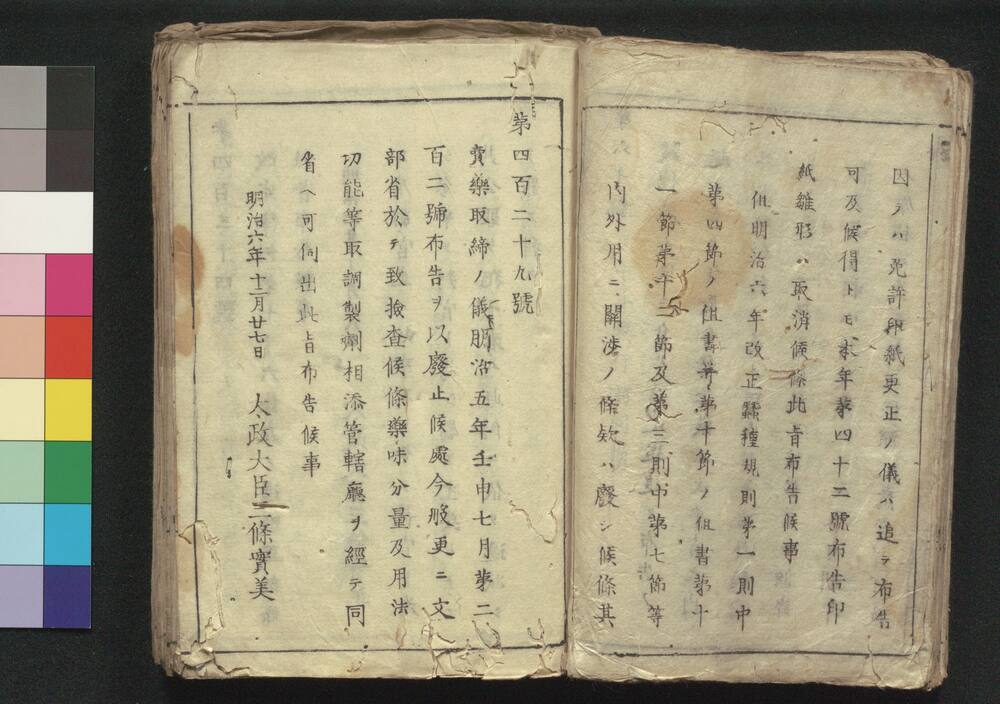 因テハ免許印紙更正ノ儀ハ追テ布告
可及候得トモ本年第四十二號布告印
紙雛形ハ取消候條此旨布告候事
但明治六年改正蠶種規則第一則中
第四節ノ但書并第十節ノ但書第十
一節第十二節及第三則中第七節等
內外用ニ關渉ノ條欵ハ廢シ候條其
第四百二十九號
賣藥取締ノ儀明治五年壬申七月第二
百二號布告ヲ以廢止候處今般更ニ文
部省於テ致撿查候條藥味分量及用法
功能等取調製劑相添管轄廳ヲ經テ同
省ヘ可伺出此旨布告候事
明治六年十二月廿七日 太政大臣三條實美